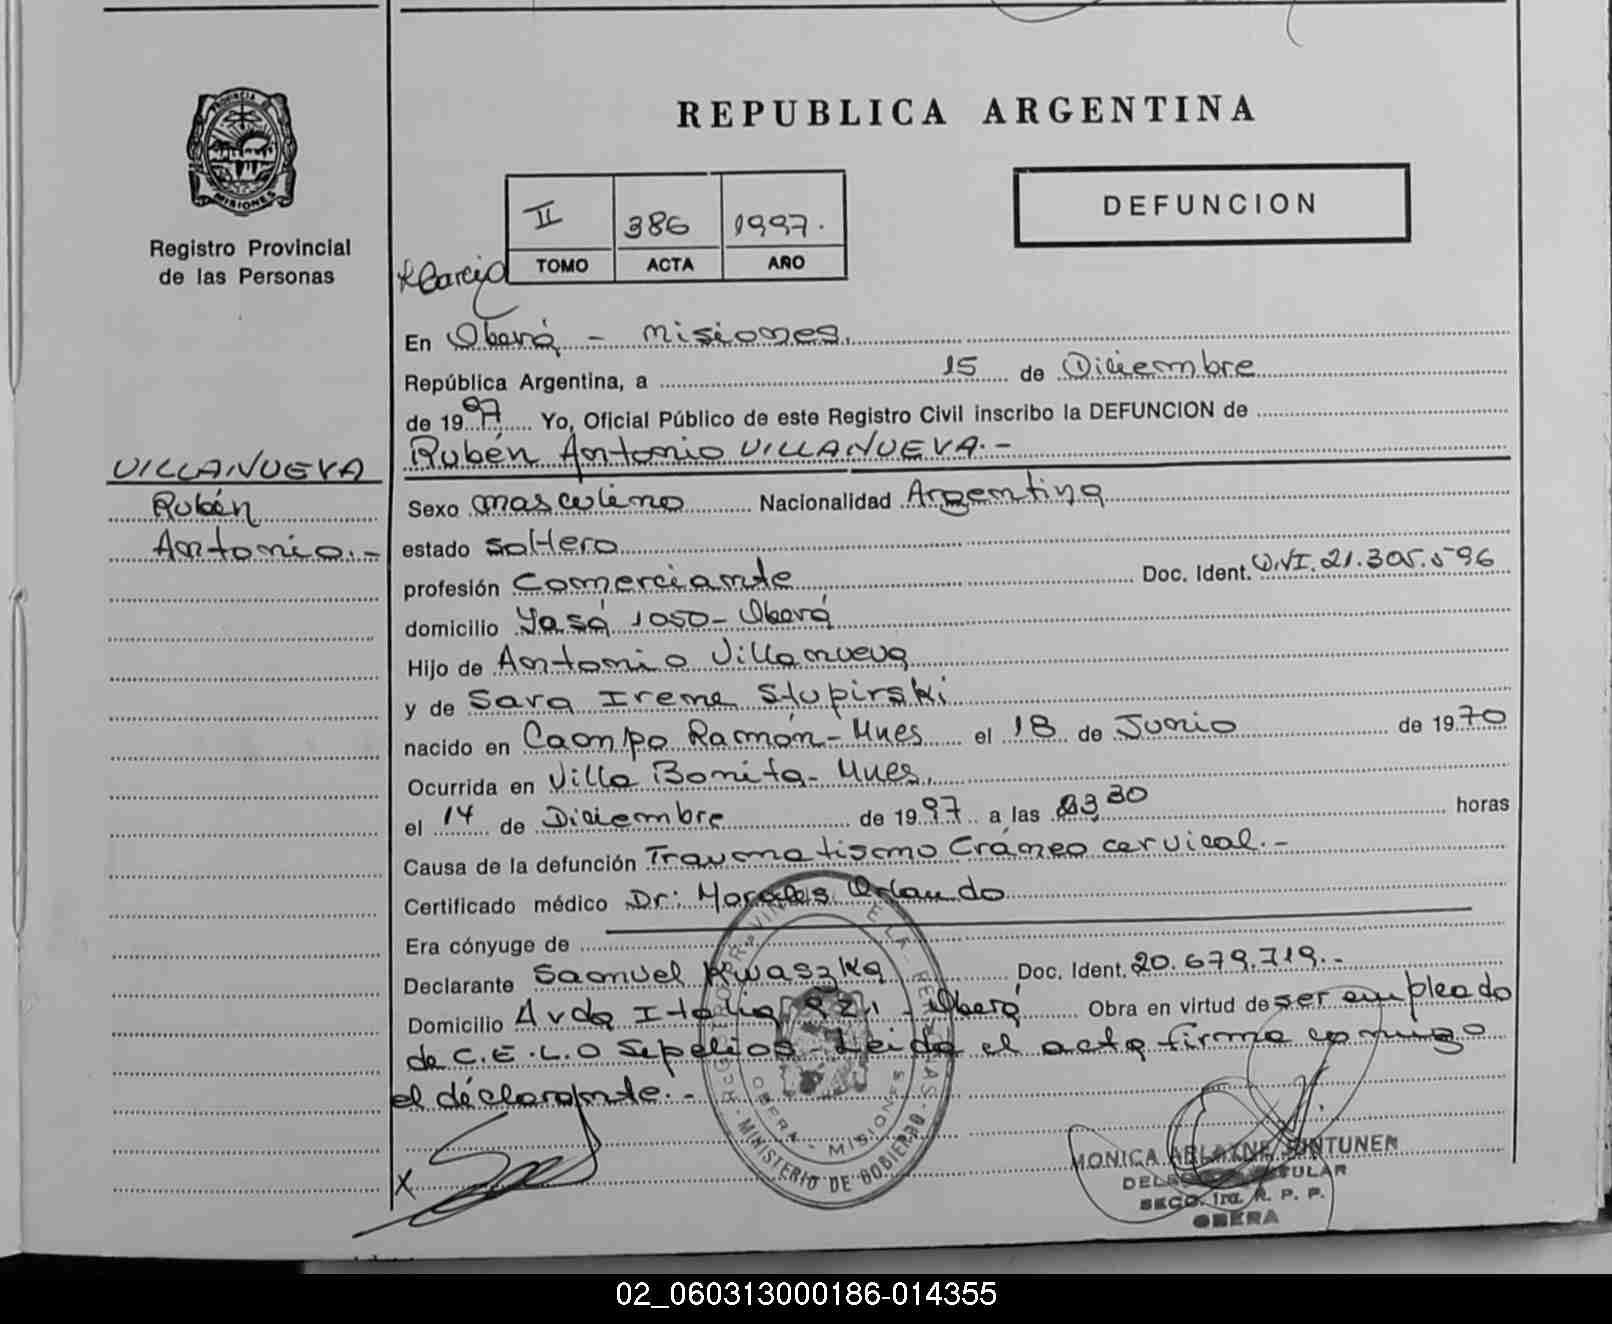 REPUBLICA ARGENTINA
PROVINCIA DE
MISIONES
Registro Provincial
de las Personas
DEFUNCION
II 386 1997.
TOMO ACTA AÑO
En Oberá - Misiones.
República Argentina, a 15 de Diciembre
de 1997 Yo, Oficial Público de este Registro Civil inscribo la DEFUNCION de
Rubén Antonio VILLANUEVA.-
VILLANUEVA
Rubén
Antonio.-
Sexo masculino Nacionalidad Argentina
estado soltero
profesión Comerciante Doc. Ident. D.N.I. 21.305.596
domicilio Yasá 1050- Oberá
Hijo de Antonio Villanueva
y de Sara Irene Slupirski
nacido en Campo Ramón - Mnes el 18 de Junio de 1970
Ocurrida en Villa Bonita- Mnes.
el 14 de Diciembre de 1997 a las 30 horas
Causa de la defunción Traumatismo Cráneo cervical.-
Certificado médico Dr: Morales Orlando
Era cónyuge de
Declarante Samuel Kwaszka Doc. Ident. 20.679.719.-
Domicilio Avda Italia 921 - Oberá Obra en virtud de ser empleado
de C.E.L.O Sepelios - Leida el acta firma conmigo
el declarante.-
X
OBERA - MISIONES
- MINISTERIO DE GOBIERNO -
MONICA UNTUNEN
TITULAR
SECC. 1ra. R. P. P.
OBERA
02_060313000186-014355